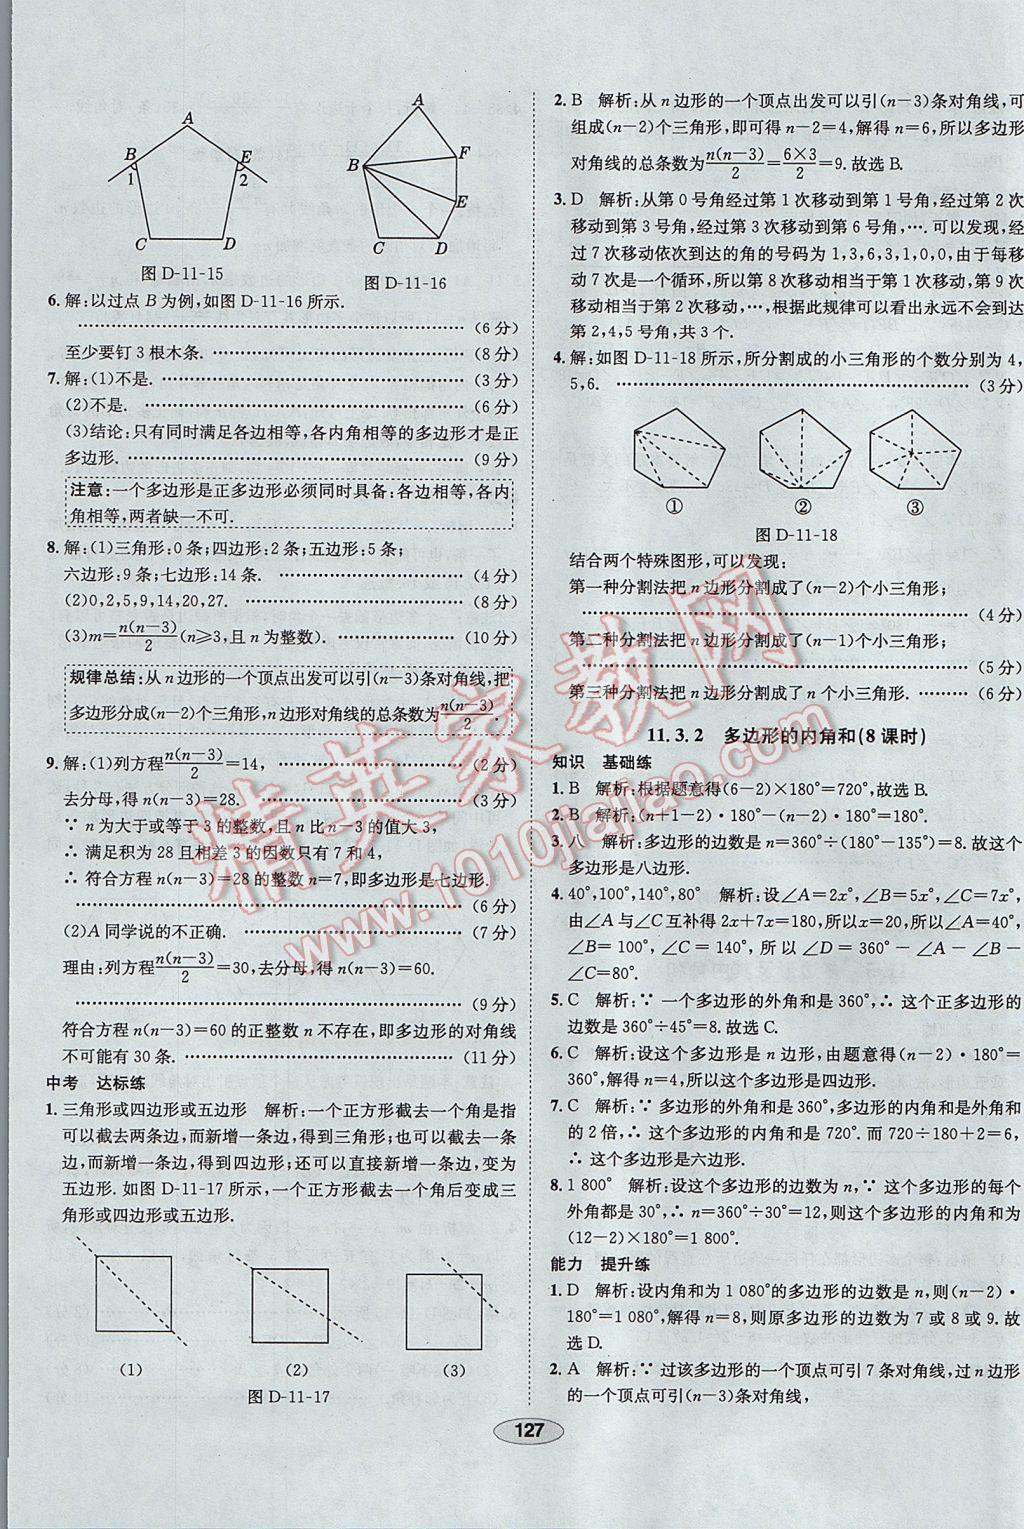 A
B
E
1
2
C
D
图 D-11-15
A
B
F
E
C
D
图 D-11-16
6. 解:以过点 B 为例,如图 D-11-16 所示.
(6 分)
至少要钉 3 根木条. (8 分)
7. 解:(1)不是. (3 分)
(2)不是. (6 分)
(3)结论:只有同时满足各边相等,各内角相等的多边形才是正
多边形. (9 分)
注意:一个多边形是正多边形必须同时具备:各边相等,各内
角相等,两者缺一不可.
8. 解:(1)三角形:0 条;四边形:2 条;五边形:5 条;
六边形:9 条;七边形:14 条. (4 分)
(2)0,2,5,9,14,20,27. (8 分)
(3)m=n(n-3)/2(n≥3,且 n 为整数). (10 分)
规律总结:从 n 边形的一个顶点出发可以引(n-3)条对角线,把
多边形分成(n-2)个三角形,n 边形对角线的总条数为n(n-3)/2.
9. 解:(1)列方程n(n-3)/2=14, (2 分)
去分母,得 n(n-3)=28. (3 分)
∵ n 为大于或等于 3 的整数,且 n 比 n-3 的值大 3,
∴ 满足积为 28 且相差 3 的因数只有 7 和 4,
∴ 符合方程 n(n-3)=28 的整数 n=7,即多边形是七边形.
(6 分)
(2)A 同学说的不正确. (7 分)
理由:列方程n(n-3)/2=30,去分母,得 n(n-3)=60.
(9 分)
符合方程 n(n-3)=60 的正整数 n 不存在,即多边形的对角线
不可能有 30 条. (11 分)
中考 达标练
1. 三角形或四边形或五边形 解析:一个正方形截去一个角是指
可以截去两条边,而新增一条边,得到三角形;也可以截去一条
边,而新增一条边,得到四边形;还可以直接新增一条边,变为
五边形.如图 D-11-17 所示,一个正方形截去一个角后变成三
角形或四边形或五边形.
(1)
(2)
(3)
图 D-11-17
2. B 解析:从 n 边形的一个顶点出发可以引(n-3)条对角线,可
组成(n-2)个三角形,即可得 n-2=4,解得 n=6,所以多边形
对角线的总条数为n(n-3)/2=6×3/2=9.故选 B.
3. D 解析:从第 0 号角经过第 1 次移动到第 1 号角,经过第 2 次
移动到第 3 号角,经过第 3 次移动到第 6 号角,….可以发现,经
过 7 次移动依次到达的角的号码为 1,3,6,3,1,0,0,由此发现
移动 7 次是一个循环,所以第 8 次移动相当于第 1 次移动,第 9 次
移动相当于第 2 次移动,…,根据此规律可以看出永远不会到达
第 2,4,5 号角,共 3 个.
4. 解:如图 D-11-18 所示,所分割成的小三角形的个数分别为 4,
5,6. (3 分)
①
②
③
图 D-11-18
结合两个特殊图形,可以发现:
第一种分割法把 n 边形分割成了(n-2)个小三角形;
(4 分)
第二种分割法把 n 边形分割成了(n-1)个小三角形;
(5 分)
第三种分割法把 n 边形分割成了 n 个小三角形. (6 分)
11.3.2 多边形的内角和(8 课时)
知识 基础练
1. B 解析:根据题意得(6-2)×180°=720°,故选 B.
2. B 解析:(n+1-2)·180°-(n-2)·180°=180°.
3. 八 解析:多边形的边数是 n=360°÷(180°-135°)=8.故这个
多边形是八边形.
4. 40°,100°,140°,80° 解析:设∠A=2x°,∠B=5x°,∠C=7x°,
由∠A 与∠C 互补得 2x+7x=180,所以 x=20,所以∠A=40°,
∠B = 100°, ∠C = 140°, 所 以 ∠D = 360° - ∠A - ∠B -
∠C=80°.
5. C 解析:∵ 一个多边形的外角和是 360°,∴ 这个正多边形的
边数为 360°÷45°=8.故选 C.
6. C 解析:设这个多边形是 n 边形,由题意得(n-2)·180°=
360°,解得 n=4,所以这个多边形是四边形.
7. C 解析:∵ 多边形的外角和是 360°,多边形的内角和是外角和
的 2 倍,∴ 这个多边形的内角和是 720°.而 720÷180+2=6,
∴ 这个多边形是六边形.
8. 1 800° 解析:设这个多边形的边数为 n,∵ 这个多边形的每个
外角为 30°,∴ n=360°÷30°=12,则这个多边形的内角和为
(12-2)×180°=1 800°.
能力 提升练
1. D 解析:设内角和为 1 080°的多边形的边数是 n,则(n-2)·
180°=1 080°,解得 n=8,则原多边形的边数为 7 或 8 或 9.故
选 D.
2. A 解析:∵ 过该多边形的一个顶点可引 7 条对角线,过 n 边形
的一个顶点可引(n-3)条对角线,
127
精英家教网
www.1010jiajiao.com